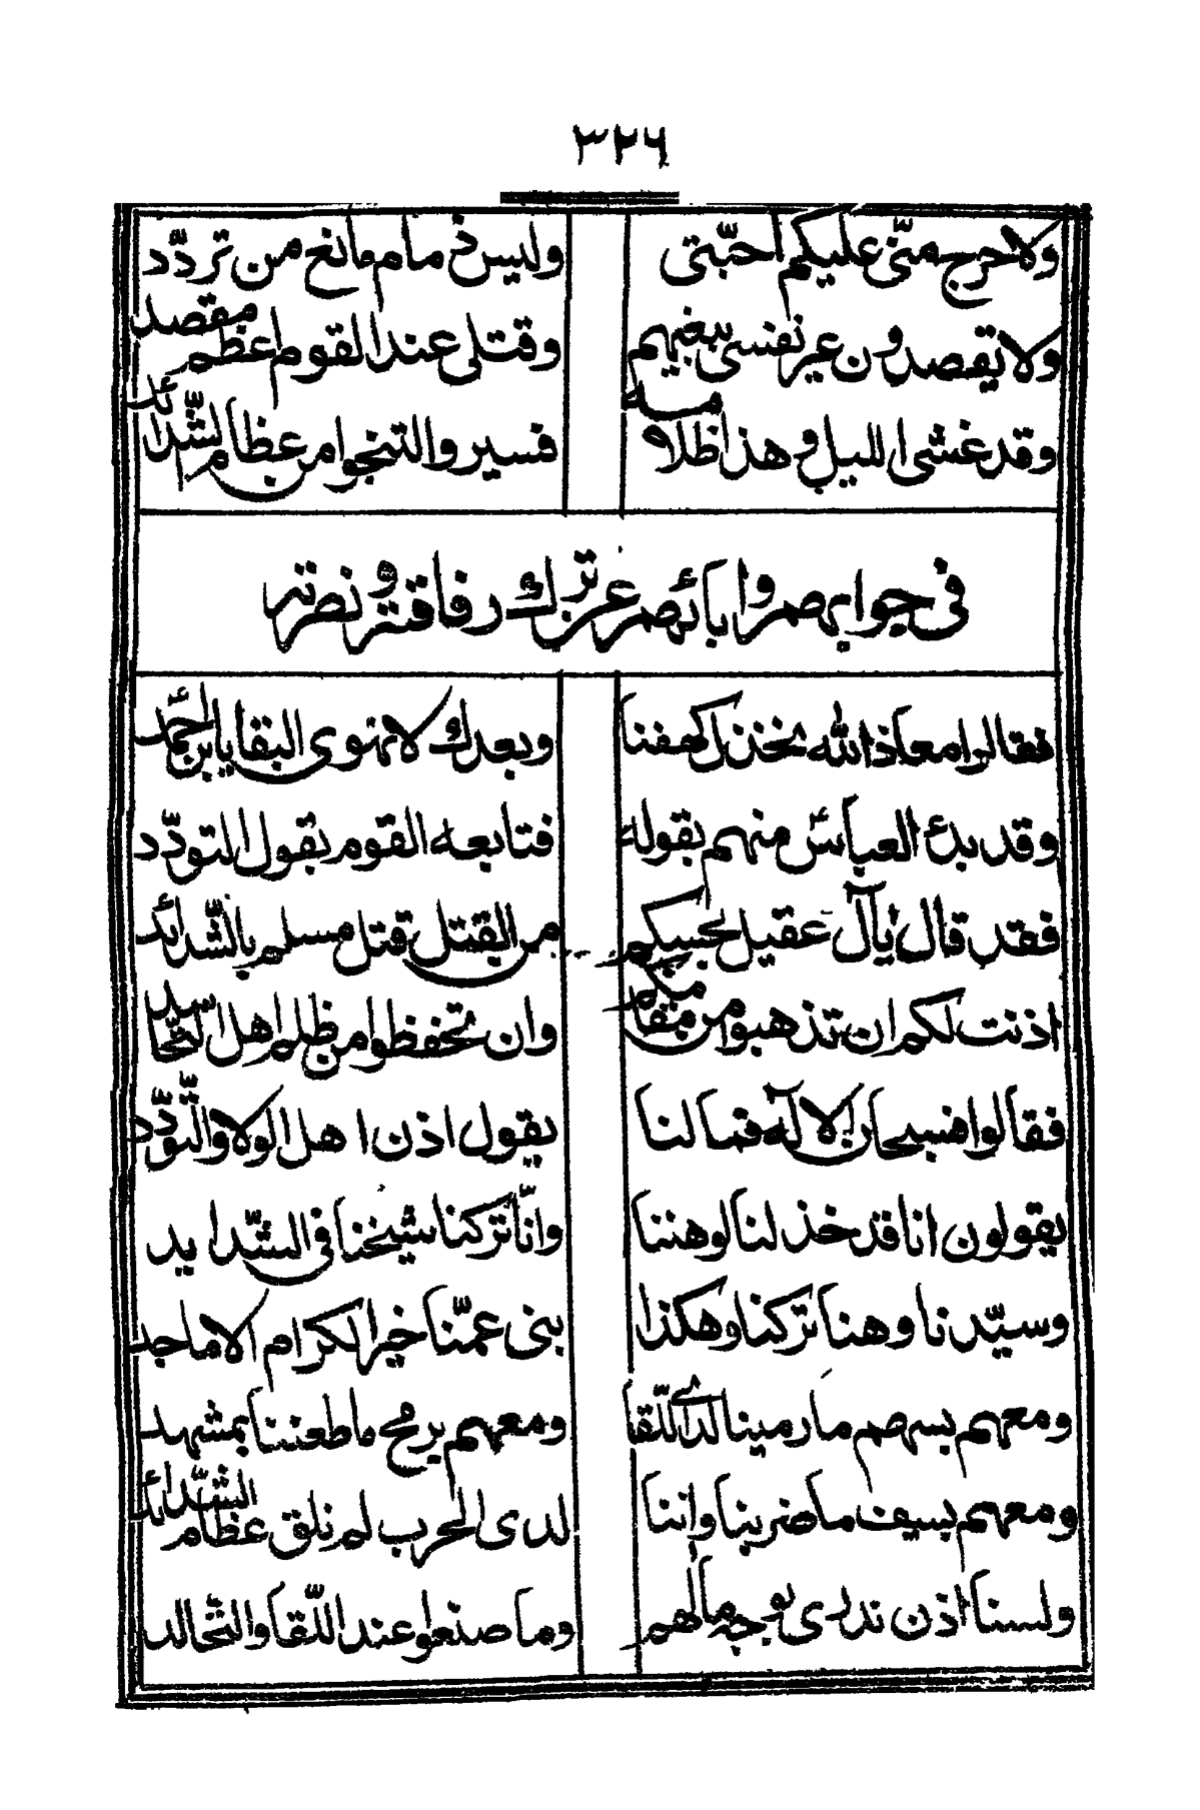 ٣٢٦
ولا حرج منّي عليكم احبّتي وليس ذمام مانع من تردّد
ولا يقصدون غير نفسي ببغيهم وقتلي عند القوم اعظم مقصد
وقد غشى الليل وهذا ظلامه فسيروا لتنجوا من عظام الشّدائد
في جوابهم وابائهم عن ترك رفاقته ونصرته
فقالوا معاذ الله نخذل كهفنا وبعدك لا نهوى البقا يا بن احمد
وقد بدء العباس منهم بقوله فتابعه القوم بقول التودّد
فقد قال يا آل عقيل بحسبكم من القتل قتل مسلم بالشّدائد
اذنت لكم ان تذهبوا من مقامكم وان تحفظوا من ظلم اهل
فقالوا فسبحان الاله فما لنا يقول اذن اهل الولا والتّودّد
يقولون انا قد خذلنا لوهننا وانّا تركنا شيخنا في الشّدايد
وسيّدنا وهنا تركنا وهكذا بني عمّنا خير الكرام الاماجد
ومعهم بسهم ما رمينا لدى اللّقا ومعهم برمح ما طعننا بمشهد
ومعهم بسيف ما ضربنا واننا لدى الحرب لم نلق عظام الشّدائد
ولسنا اذن ندري بوجه مالهم وما صنعوا عند اللّقا والتّجالد